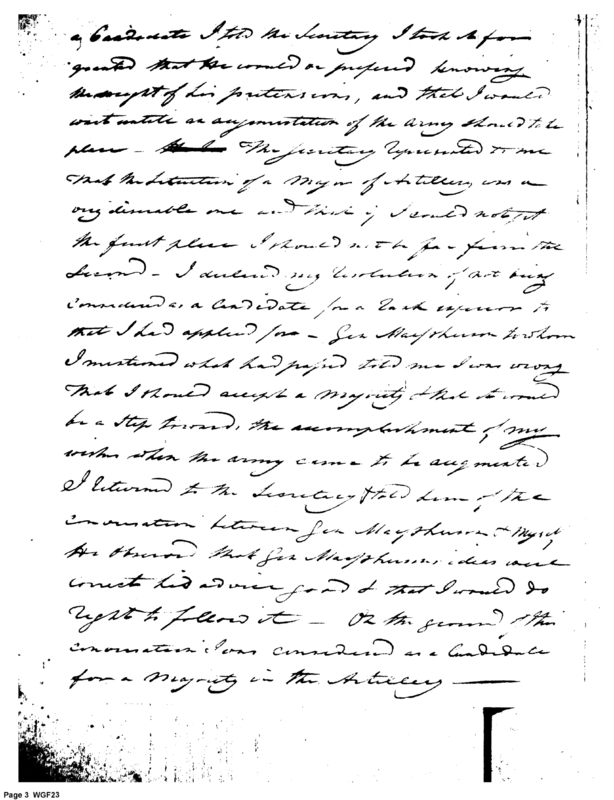 a Candidate I told the Secretary I took it for
granted that He would be prefered knowing
the weight of his pretensions, and that I would
wait untile an augmentation of the Army should take
place – The Secretary represented to me
that the Situation of a Major of Artillery was a
very disirable one and that if I could not get
the first place I should not be far from the
Second – I declared my resolution of not being
considered as a Candidate for a rank inferior to
that I had applied for – Gen Macpherson to whom
I mentioned what had passed told me I was wrong
that I should accept a Majority & that it would
be a Step towards the accomplishment of my
wishes when the army came to be augmented
I returned to the Secretary & told him of the
conversation between Gen Macpherson & Myself
He Observed that Gen Macphersons ideas were
correct his advice good & that I would do
right to follow it – On the ground of this
conversation I was considered as a Candidate
for a Majority in the Artillery —
Page 3 WGF23